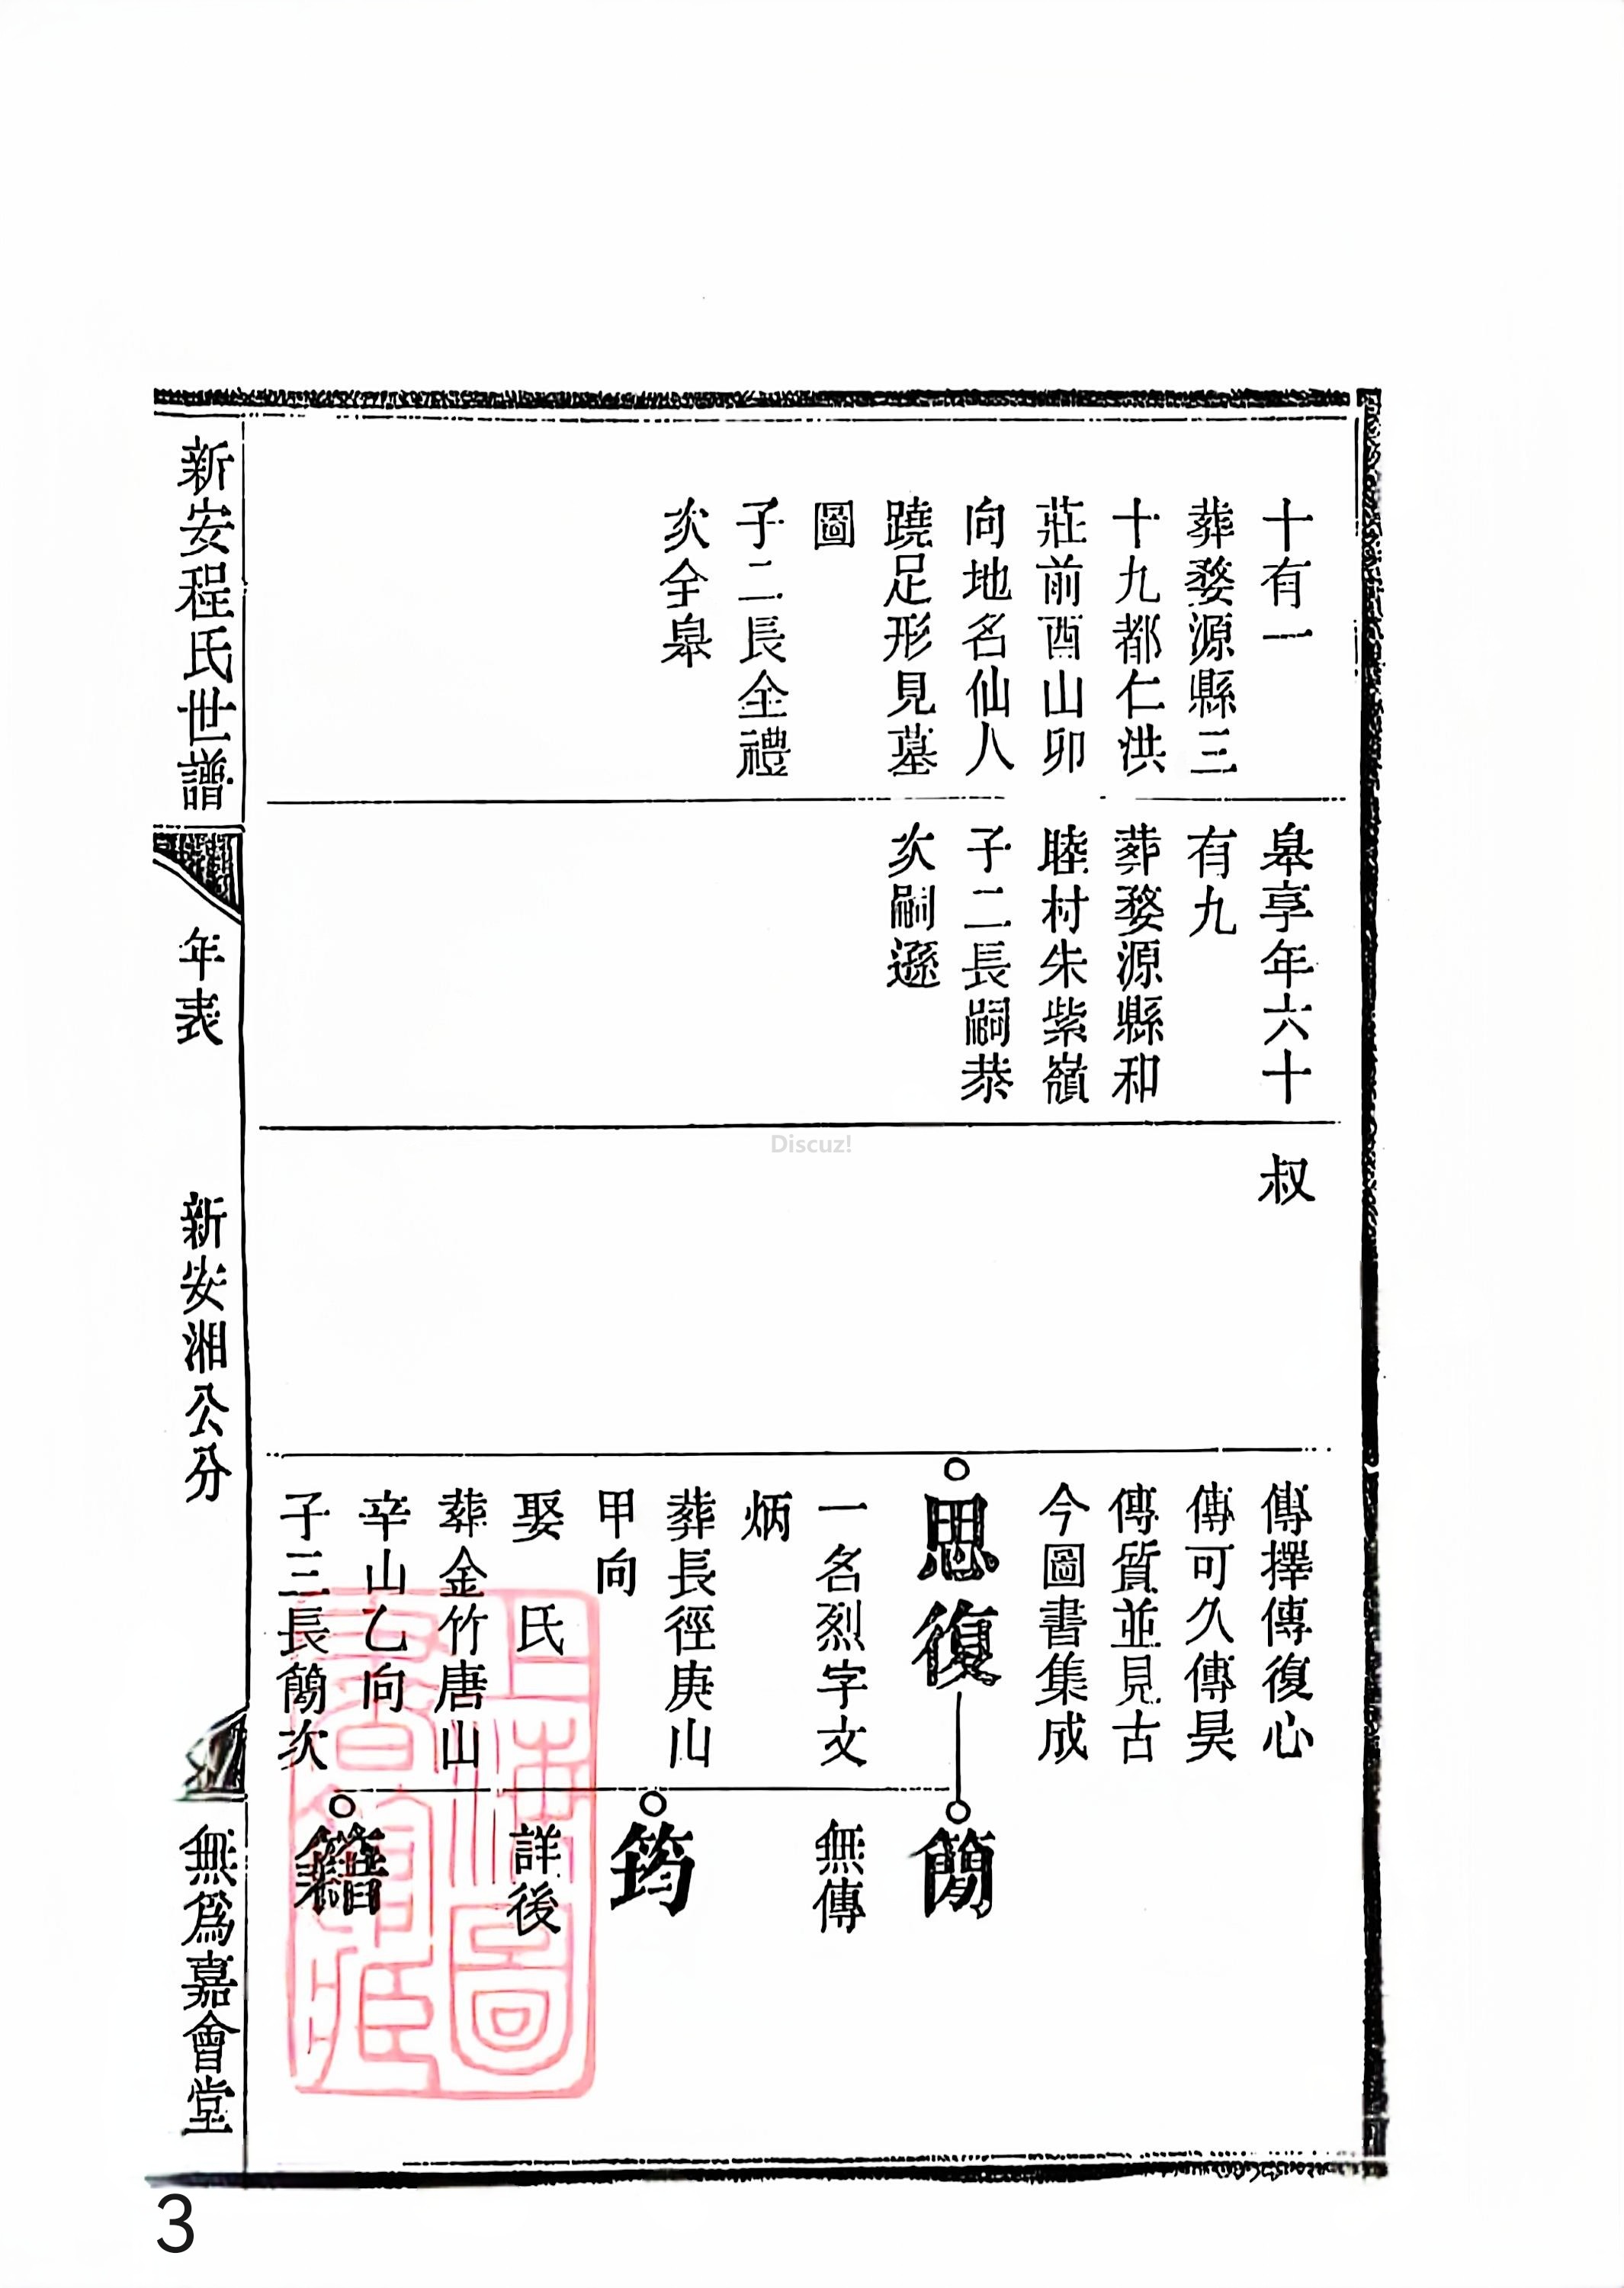 十有一
葬婺源縣三
十九都仁洪
莊前酉山卯
向地名仙人
蹺足形見墓
圖
子二長全禮
次全皋
皋享年六十
有九
葬婺源縣和
睦村朱紫嶺
子二長嗣恭
次嗣遜
叔
傳擇傳復心
傳可久傳昊
傳質並見古
今圖書集成
思復
一名烈字文
炳
葬長徑庚山
甲向
娶 氏
葬金竹唐山
辛山乙向
子三長簡次
簡
無傳
筠
詳後
籍
新安程氏世譜
年表
新安湘公分
無爲嘉會堂
上海圖
書館藏
Discuz!
3